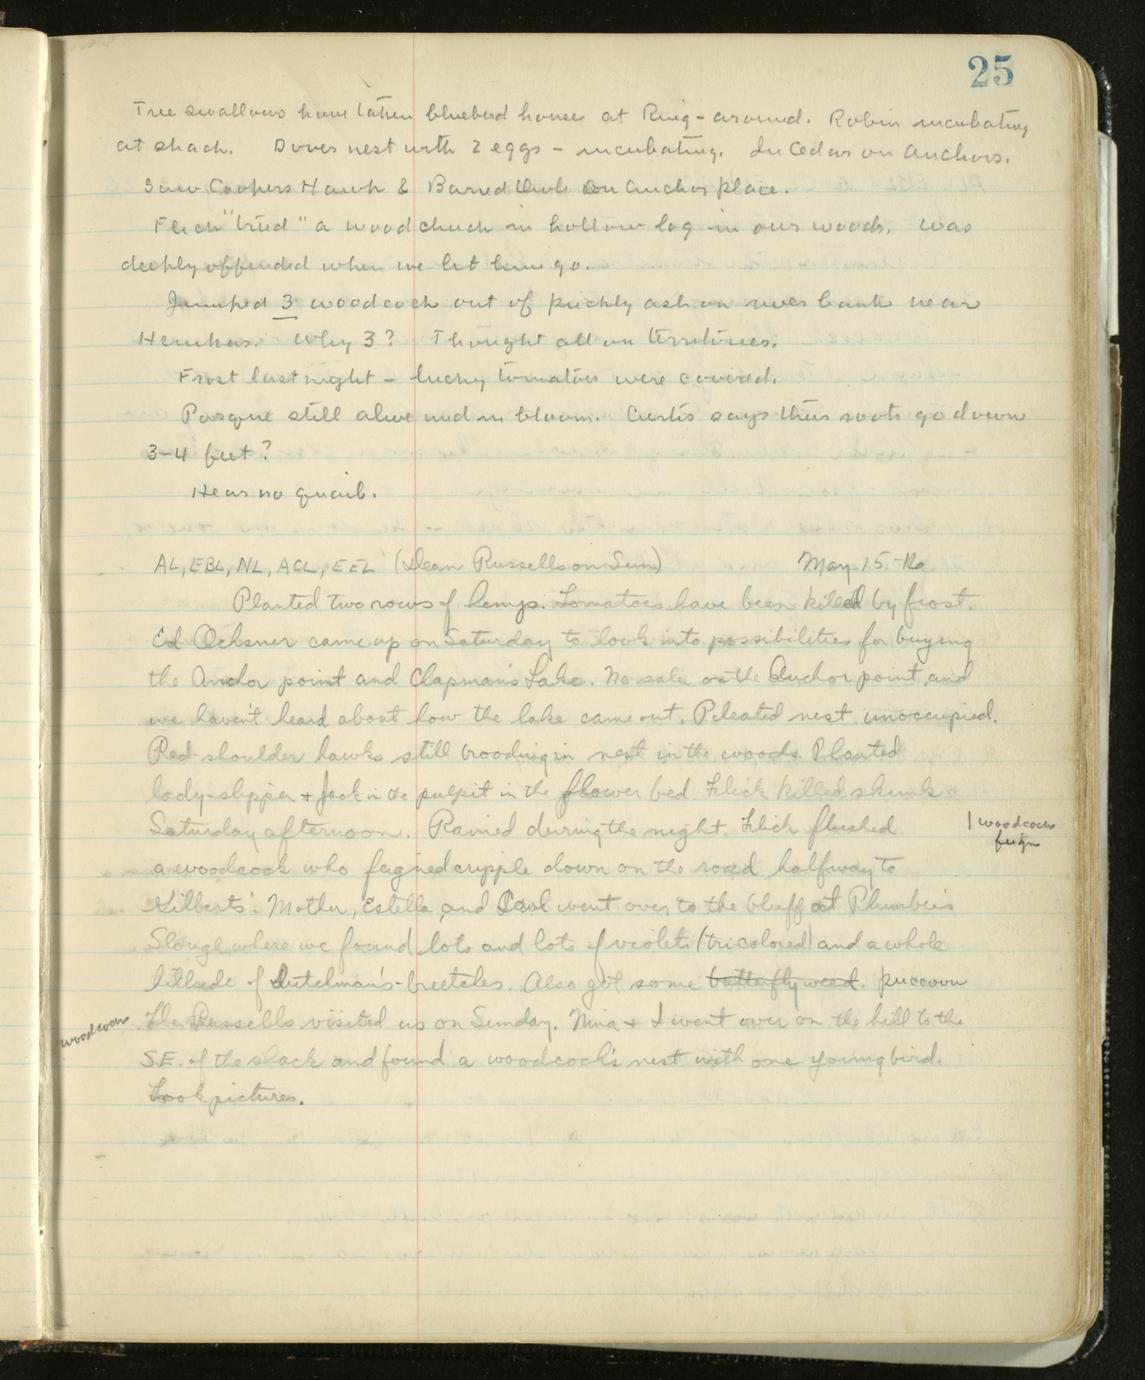 25
Tree swallows have taken bluebird house at Ring-around. Robin incubating
at shack. Doves nest with 2 eggs - incubating. In Cedar on Anchors.
Saw Coopers Hawk & Barred Owl on Anchor place.
Flick "treed" a woodchuck in hollow log in our woods. Was
deeply offended when we let him go.
Jumped 3 woodcock out of prickly ash on river bank near
Why 3? Thought all on territories.
Frost last night - lucky tomatoes were covered.
Pasque still alive and in bloom. Curtis says their roots go down
3-4 feet?
Hear no quail.
AL, EBL, NL, ACL, EEL (Dean Russells on Sun) May 15-16
Planted two rows of hemp. Tomatoes have been killed by frost.
Ed Ochsner came up on Saturday to look into possibilities for buying
the Anchor point and Chapman's Lake. No sale on the Anchor point, and
we haven't heard about how the lake came out. Pileated nest unoccupied.
Red-shoulder hawks still brooding in nest in the woods. Planted
lady-slipper + Jack in the pulpit in the flower bed. Flick killed skunk
Saturday afternoon. Rained during the night. Flick flushed
1 woodcock
feign
a woodcock who feigned cripple down on the road halfway to
Gilberts'. Mother, Estella, and Carl went over to the bluff at
Slough where we found lots and lots of violets (tricolored) and a whole
hillside of Dutchman's-breetches. Also got some butterflyweed. puccoon
The Russells visited us on Sunday. Nina + I went over on the hill to the
S.E. of the shack and found a woodcock's nest with one young bird.
Took pictures.